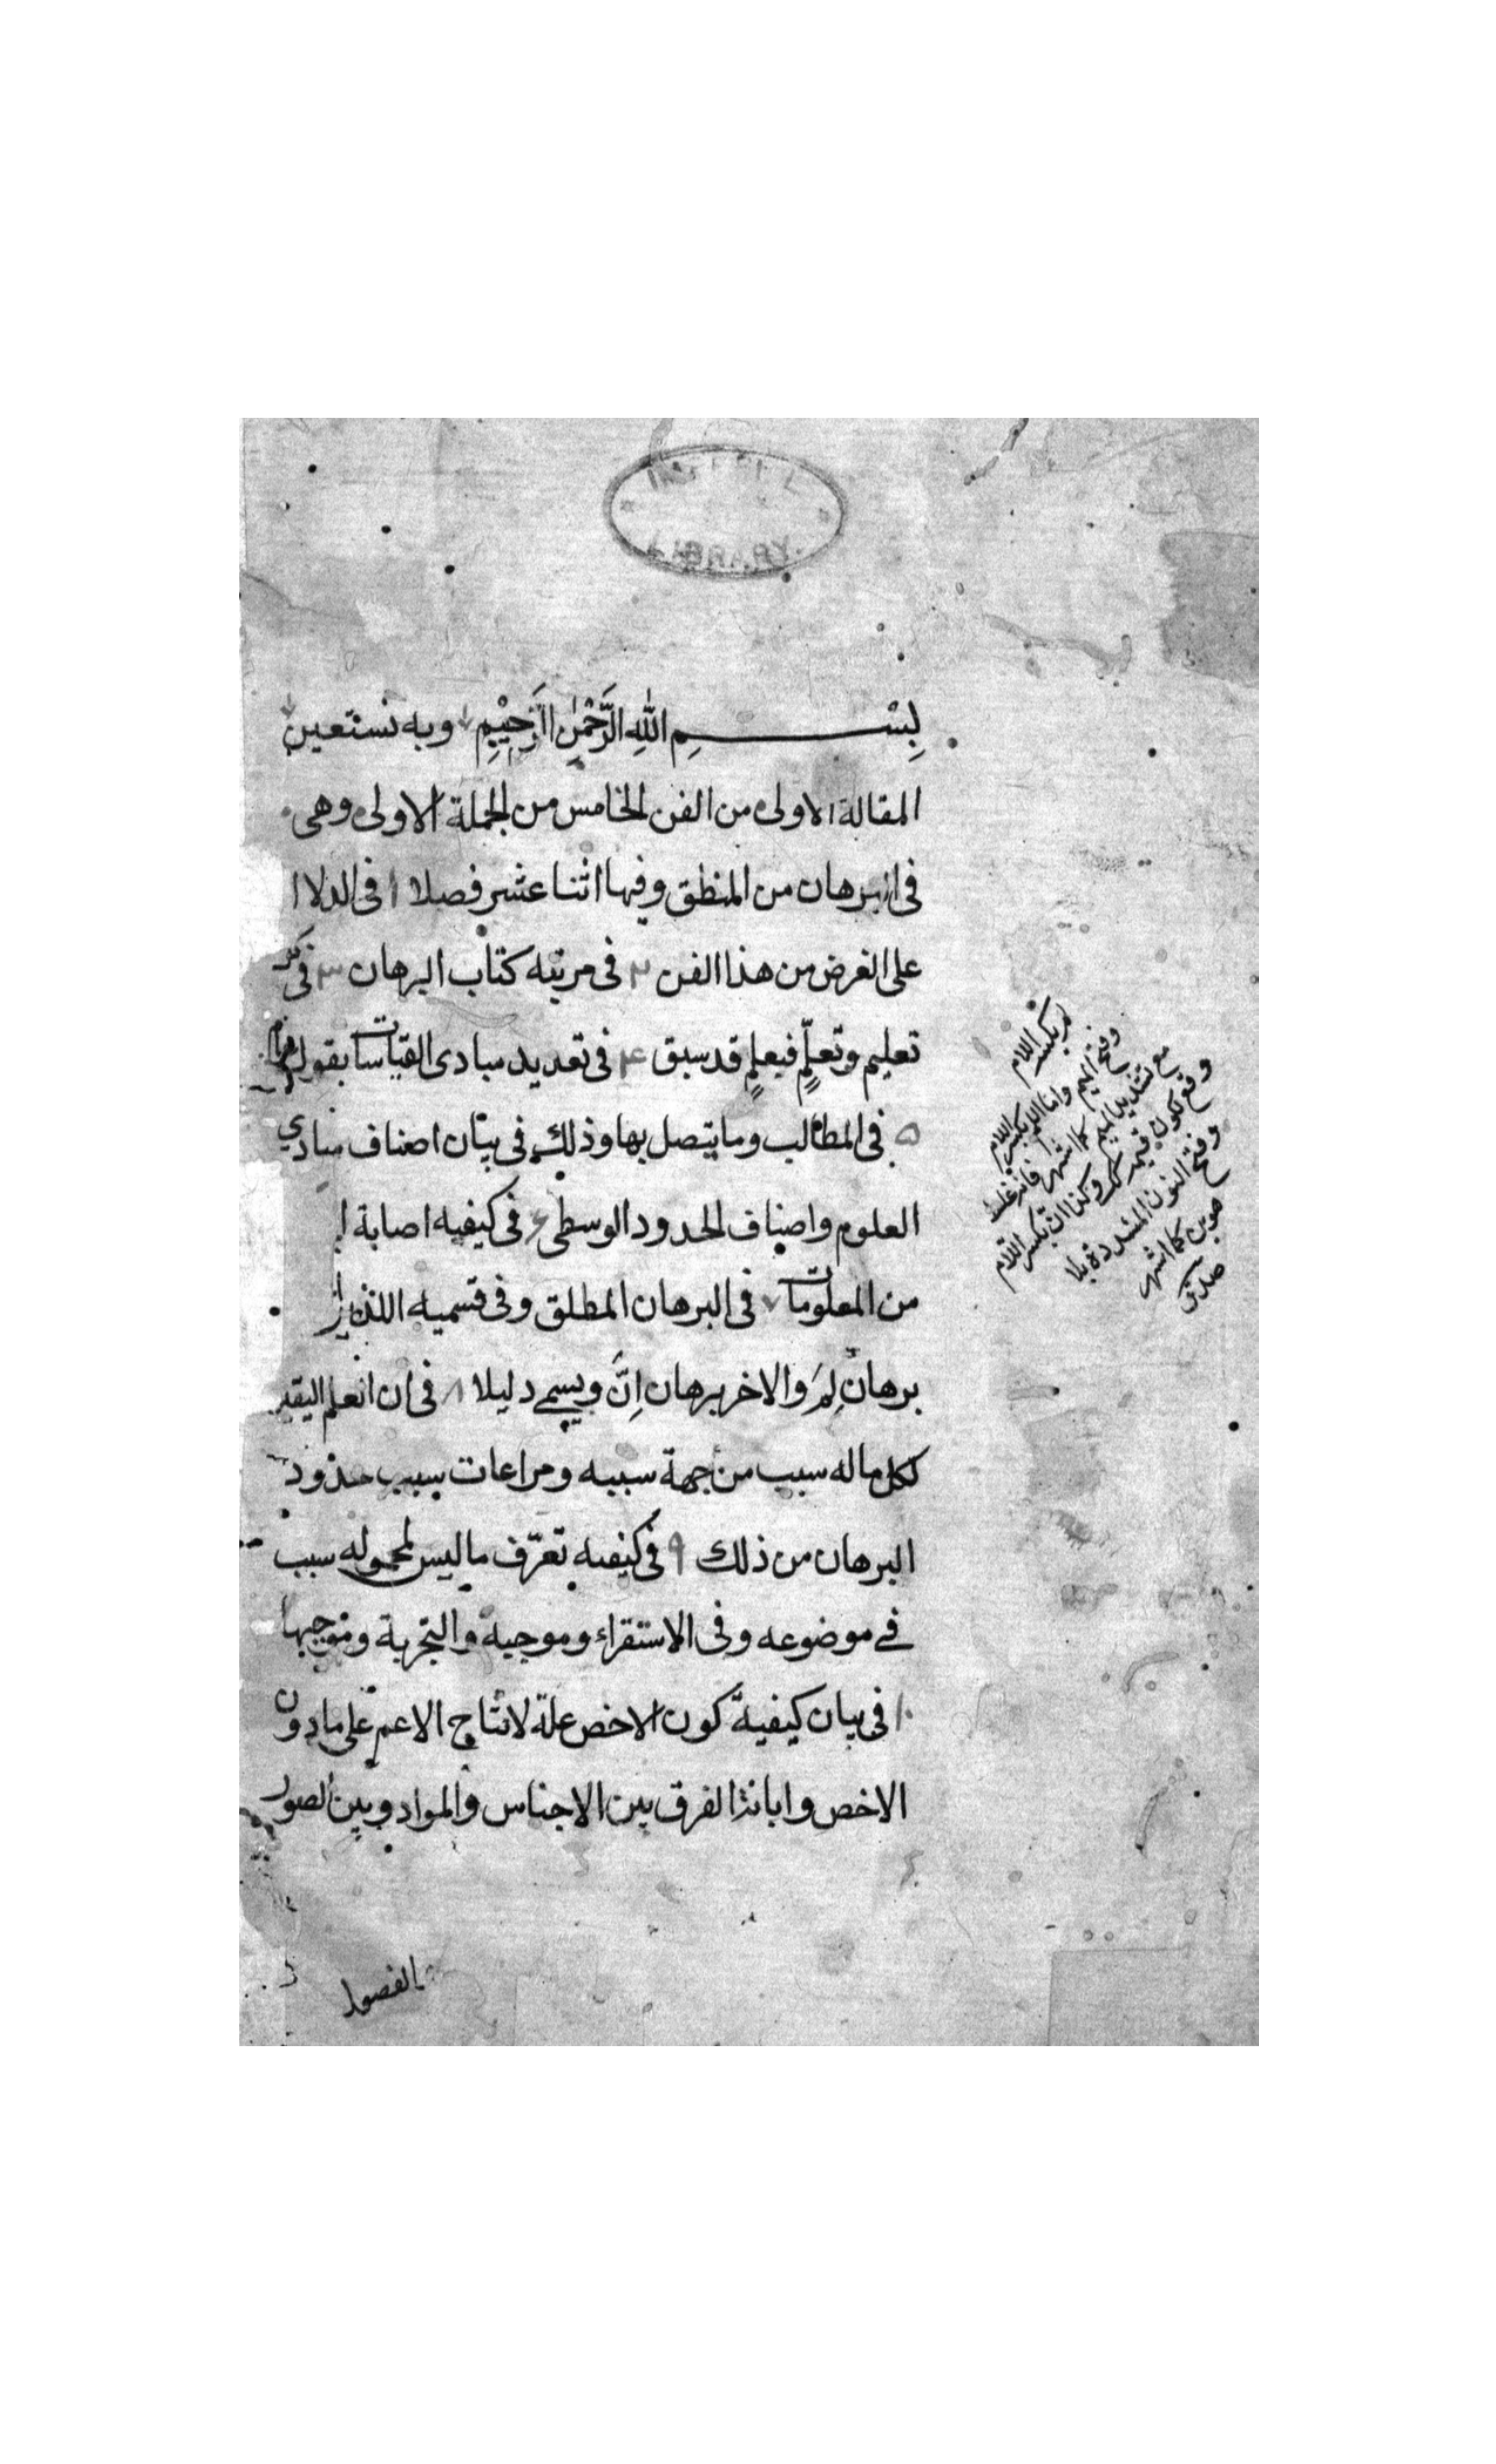 بِسْمِ اللهِ الرَّحْمٰنِ الرَّحِيْمِ وبه نستعين
المقالة الاولى من الفن الخامس من الجملة الاولى وهى
فى البرهان من المنطق وفيها اثنا عشر فصلا ا فى الدلا
على الغرض من هذا الفن ٢ فى مرتبه كتاب البرهان ٣ فى
تعليم وتعلّمٍ فبعلمٍ قد سبق ٤ فى تعديد مبادى القياسات بقول
٥ فى المطالب وما يتصل بها وذلك فى بيان اصناف مبادي
العلوم واصناف الحدود الوسطى ٦ فى كيفيه اصابة
من المعلومات ٧ فى البرهان المطلق وفى قسميه اللذين
برهان لِمَ والاخر برهان اِنَّ ويسمى دليلا ٨ فى ان العلم اليقي
لكل ما له سبب من جهة سببه ومراعات سبب حدود
البرهان من ذلك ٩ فى كيفيه تعرّف ما ليس لمحموله سبب
فى موضوعه وفى الاستقراء وموجبه والتجربة وموجبها
١٠ فى بيان كيفية كون الاخص علة لانتاج الاعم على ما دون
الاخص وابانة الفرق بين الاجناس والمواد وبين الصور
لم بكسر اللام
وفتح الميم واما اللم بكسر اللام
مع تشديد الميم كما اشتهر فانه غلط
وكذا ان بكسر اللام
وفتح النون المشددة بلا
كما اشتهر
الفصول
LIBRARY